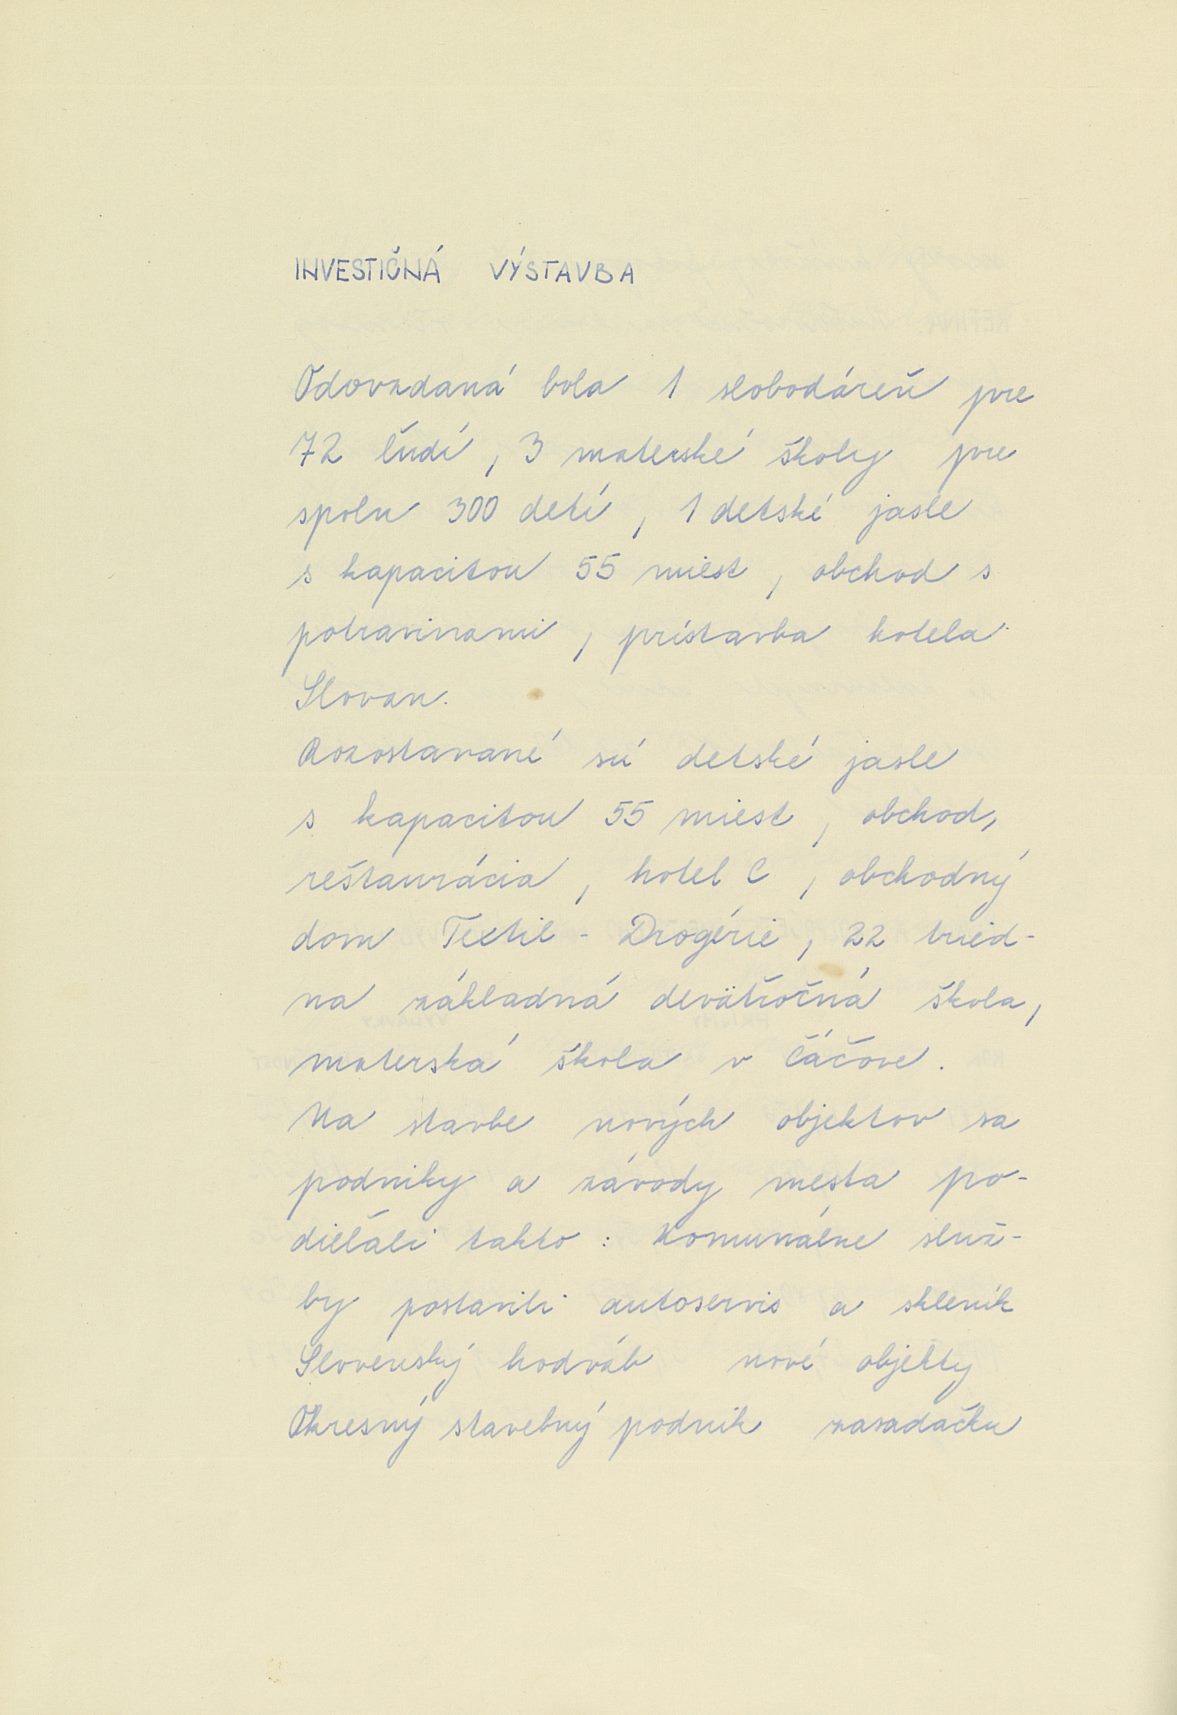 INVESTIČNÁ VÝSTAVBA
Odovzdaná bola 1 slobodáreň pre
72 ľudí, 3 materské školy pre
spolu 300 detí, 1 detské jasle
s kapacitou 55 miest, obchod s
potravinami, prístavba hotela
Slovan.
Rozostavané sú detské jasle
s kapacitou 55 miest, obchod,
reštaurácia, hotel C, obchodný
dom Textil - Drogérie, 22 tried-
na základná deväťročná škola,
materská škola v Čáčove.
Na stavbe nových objektov sa
podniky a závody mesta po-
dieľali takto: Komunálne služ-
by postavili autoservis a skleník
Slovenský hodváb nové objekty
Okresný stavebný podnik zasadačku